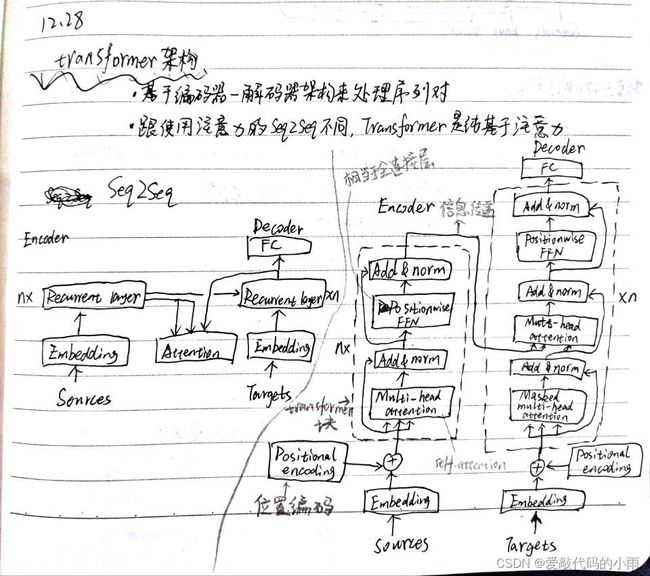 12.28
transformer 架构
·基于编码器-解码器架构来处理序列对
·跟使用注意力的Seq2Seq不同,Transformer是纯基于注意力
Seq2Seq
Encoder
Decoder
FC
nx
Recurrent layer
Recurrent layer
xn
Embedding
Attention
Embedding
Sources
Targets
相当于全连接层
Encoder
信息传递
Add & norm
Positionwise
FFN
nx
Add & norm
transformer
块
Multi-head
attention
Positional
encoding
+
self-attention
位置编码
Embedding
Sources
Decoder
FC
Add & norm
Positionwise
FFN
Add & norm
xn
Multi-head
attention
Add & norm
Masked
multi-head
attention
+
Positional
encoding
Embedding
Targets
CSDN @爱敲代码的小雨